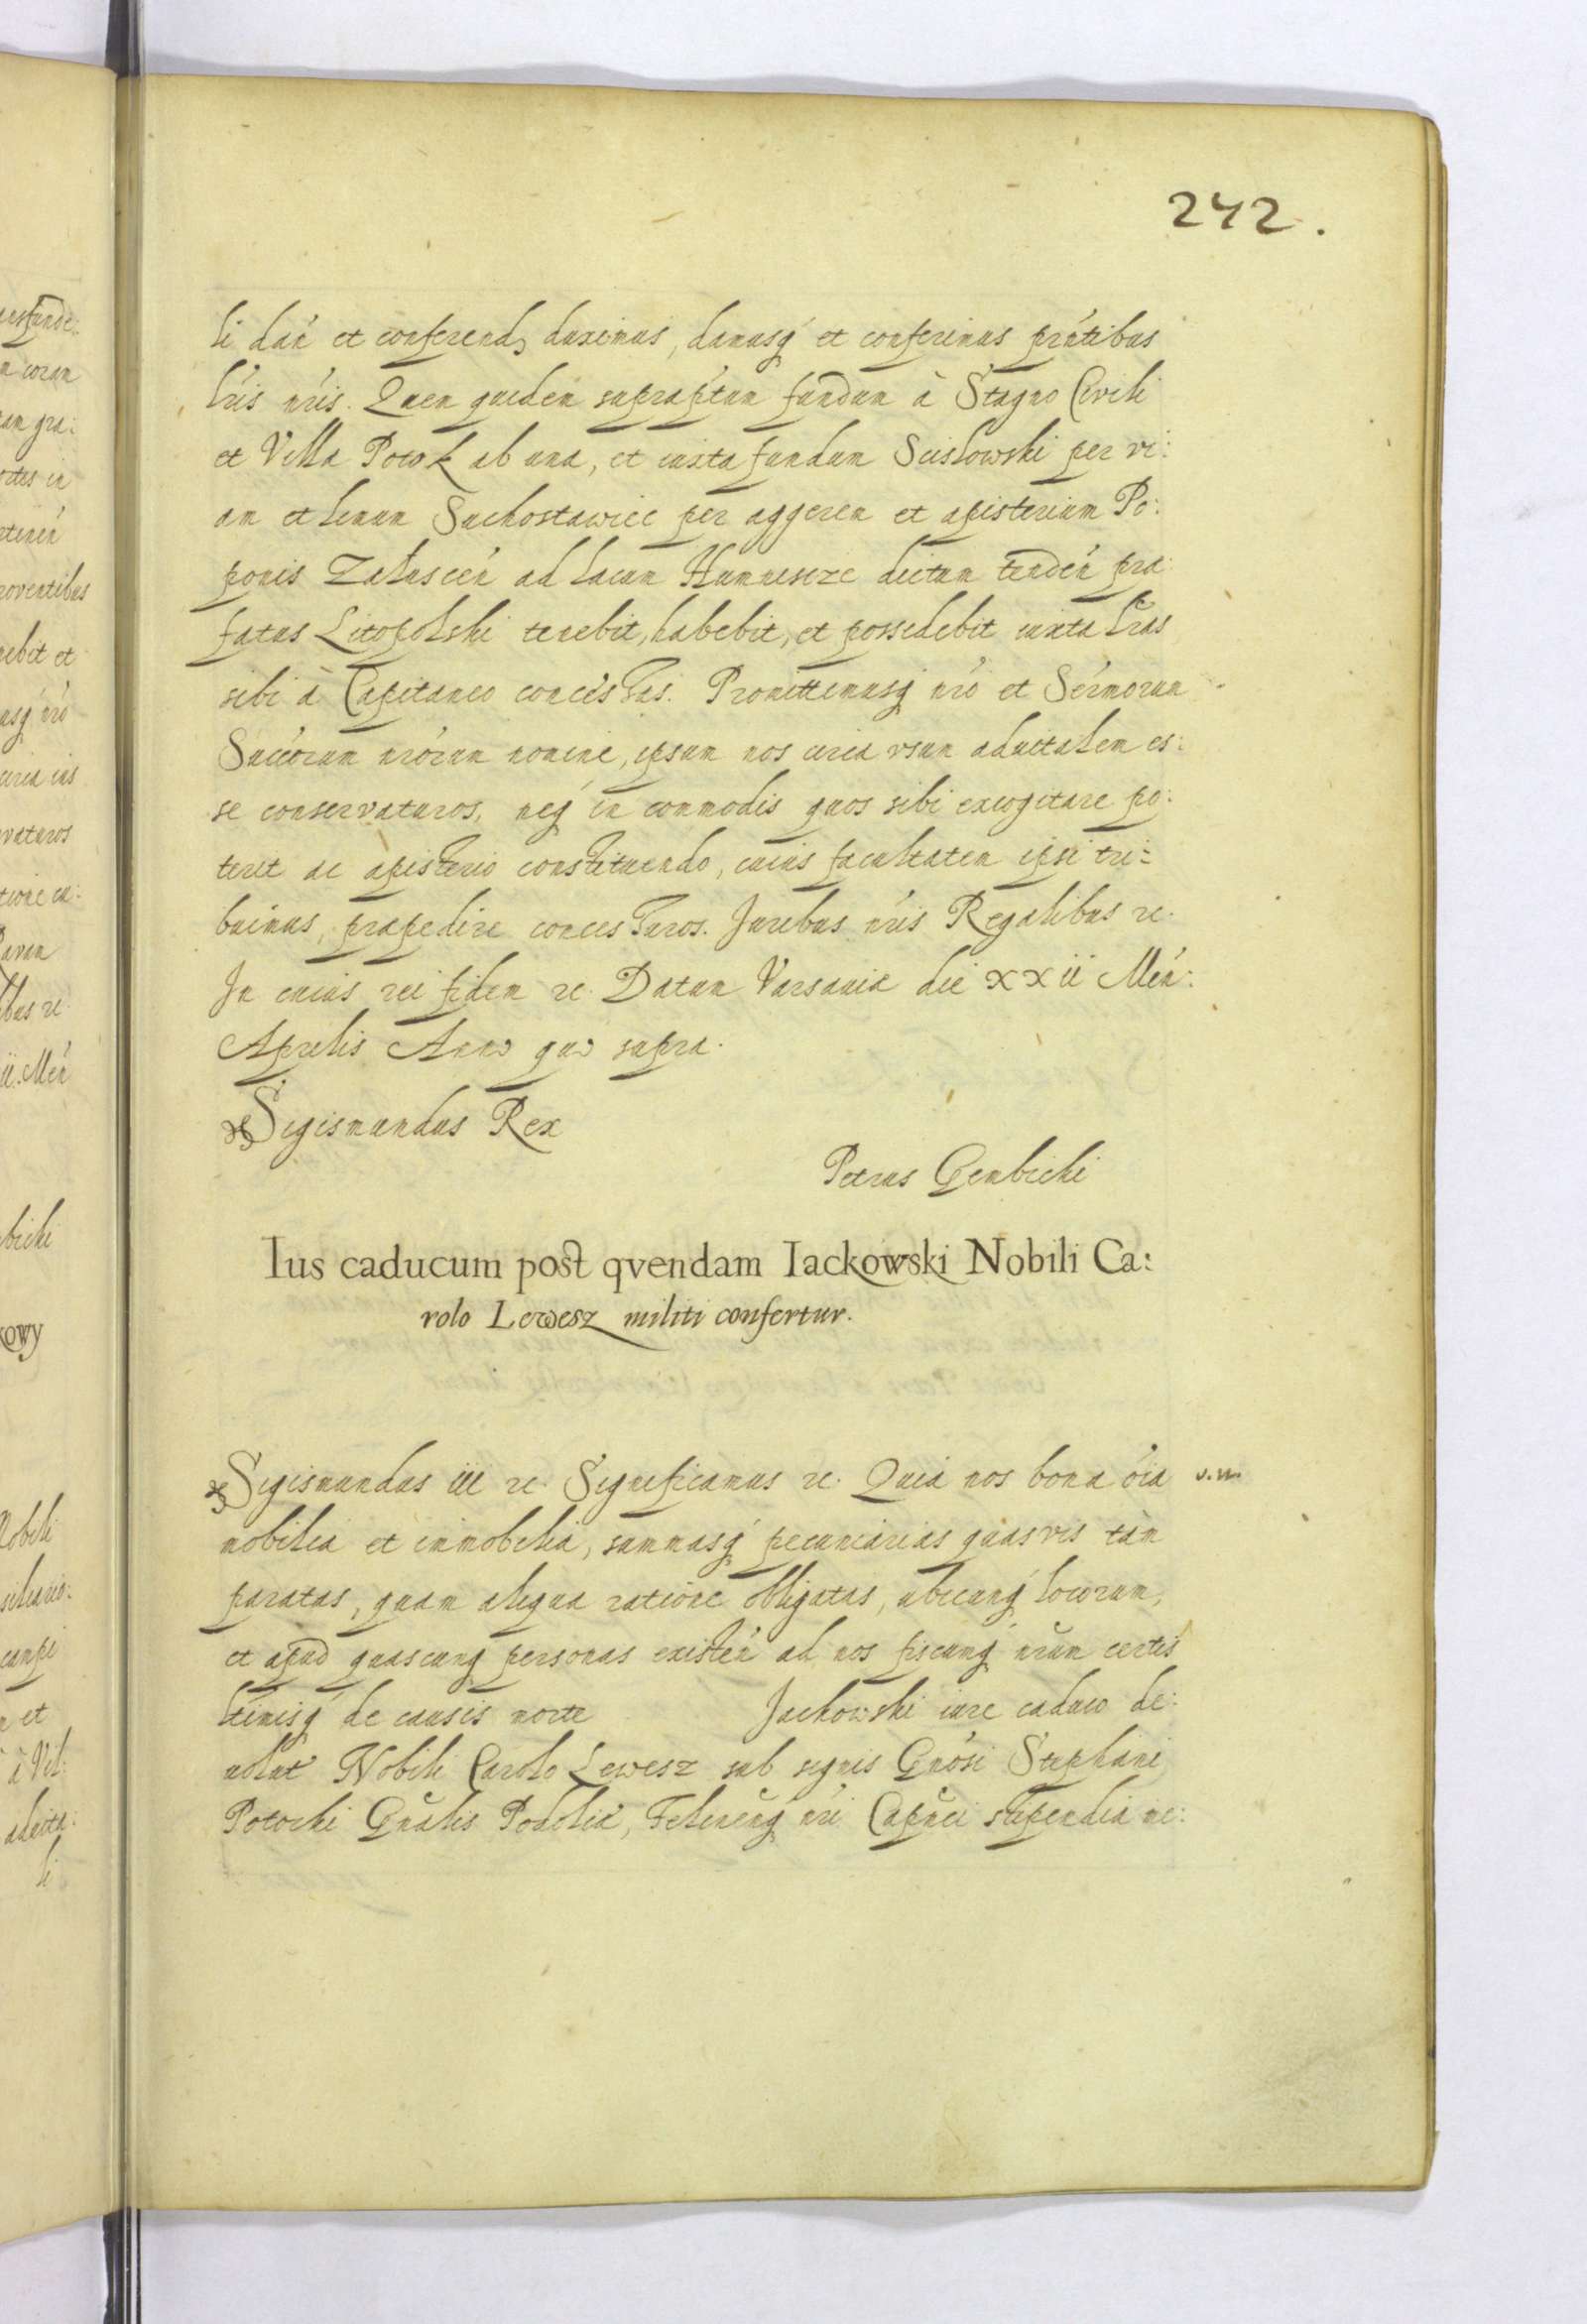 242.
li dań et conferend, duximus, damusq́ et conferimus pŕntibus
lŕis nŕis. Quem quidem suprapt́um fundum à Stagno Civili
et Villa Potok ab una, et iuxta fundum Scislowski per vi:
am et limum Suchostawiec per aggerem et apisterium Po:
ponis Załuscień ad lacum Humniszcze dictum tendeń præ:
fatus Litopolski tenebit, habebit, et possidebit iuxta lr̃as
sibi à Capitaneo concéssas. Promittimusq́ nŕo et Seŕmorum
Succórum nŕorum nomine, ipsum nos circa vsum aduitalem es:
se conservaturos, neq́ in commodis quos sibi excogitare po:
terit ac apisterio constituendo, cuius facultatem ipsi tri:
buimus, præpedire concessuros. Juribus nŕis Regalibus &c.
In cuius rei fidem &c. Datum Varsauiæ die XXii Meń:
Aprilis Anno quo supra.
Sigismundus Rex
Petrus Gembicki
Ius caducum post qvendam Iackowski Nobili Ca:
rolo Lewesz militi confertur.
Sigismundus iii &c. Significamus &c. Quia nos bona óia
mobilia et immobilia, summasq́ pecuniarias quasvis tàm
paratas, quam aliqua ratione obligatas, ubicunq́ locorum,
et apud quascunq́ personas existeń ad nos fiscumq́ nr̃um certis
ltímisq́ de causis morte Jackowski iure caduco de:
uolut́ Nobili Carolo Lewesz sub signis Gnósi Stephani
Potocki Gnãlis Podoliæ, Felinenq́ nŕi Capnẽi stipendia me: